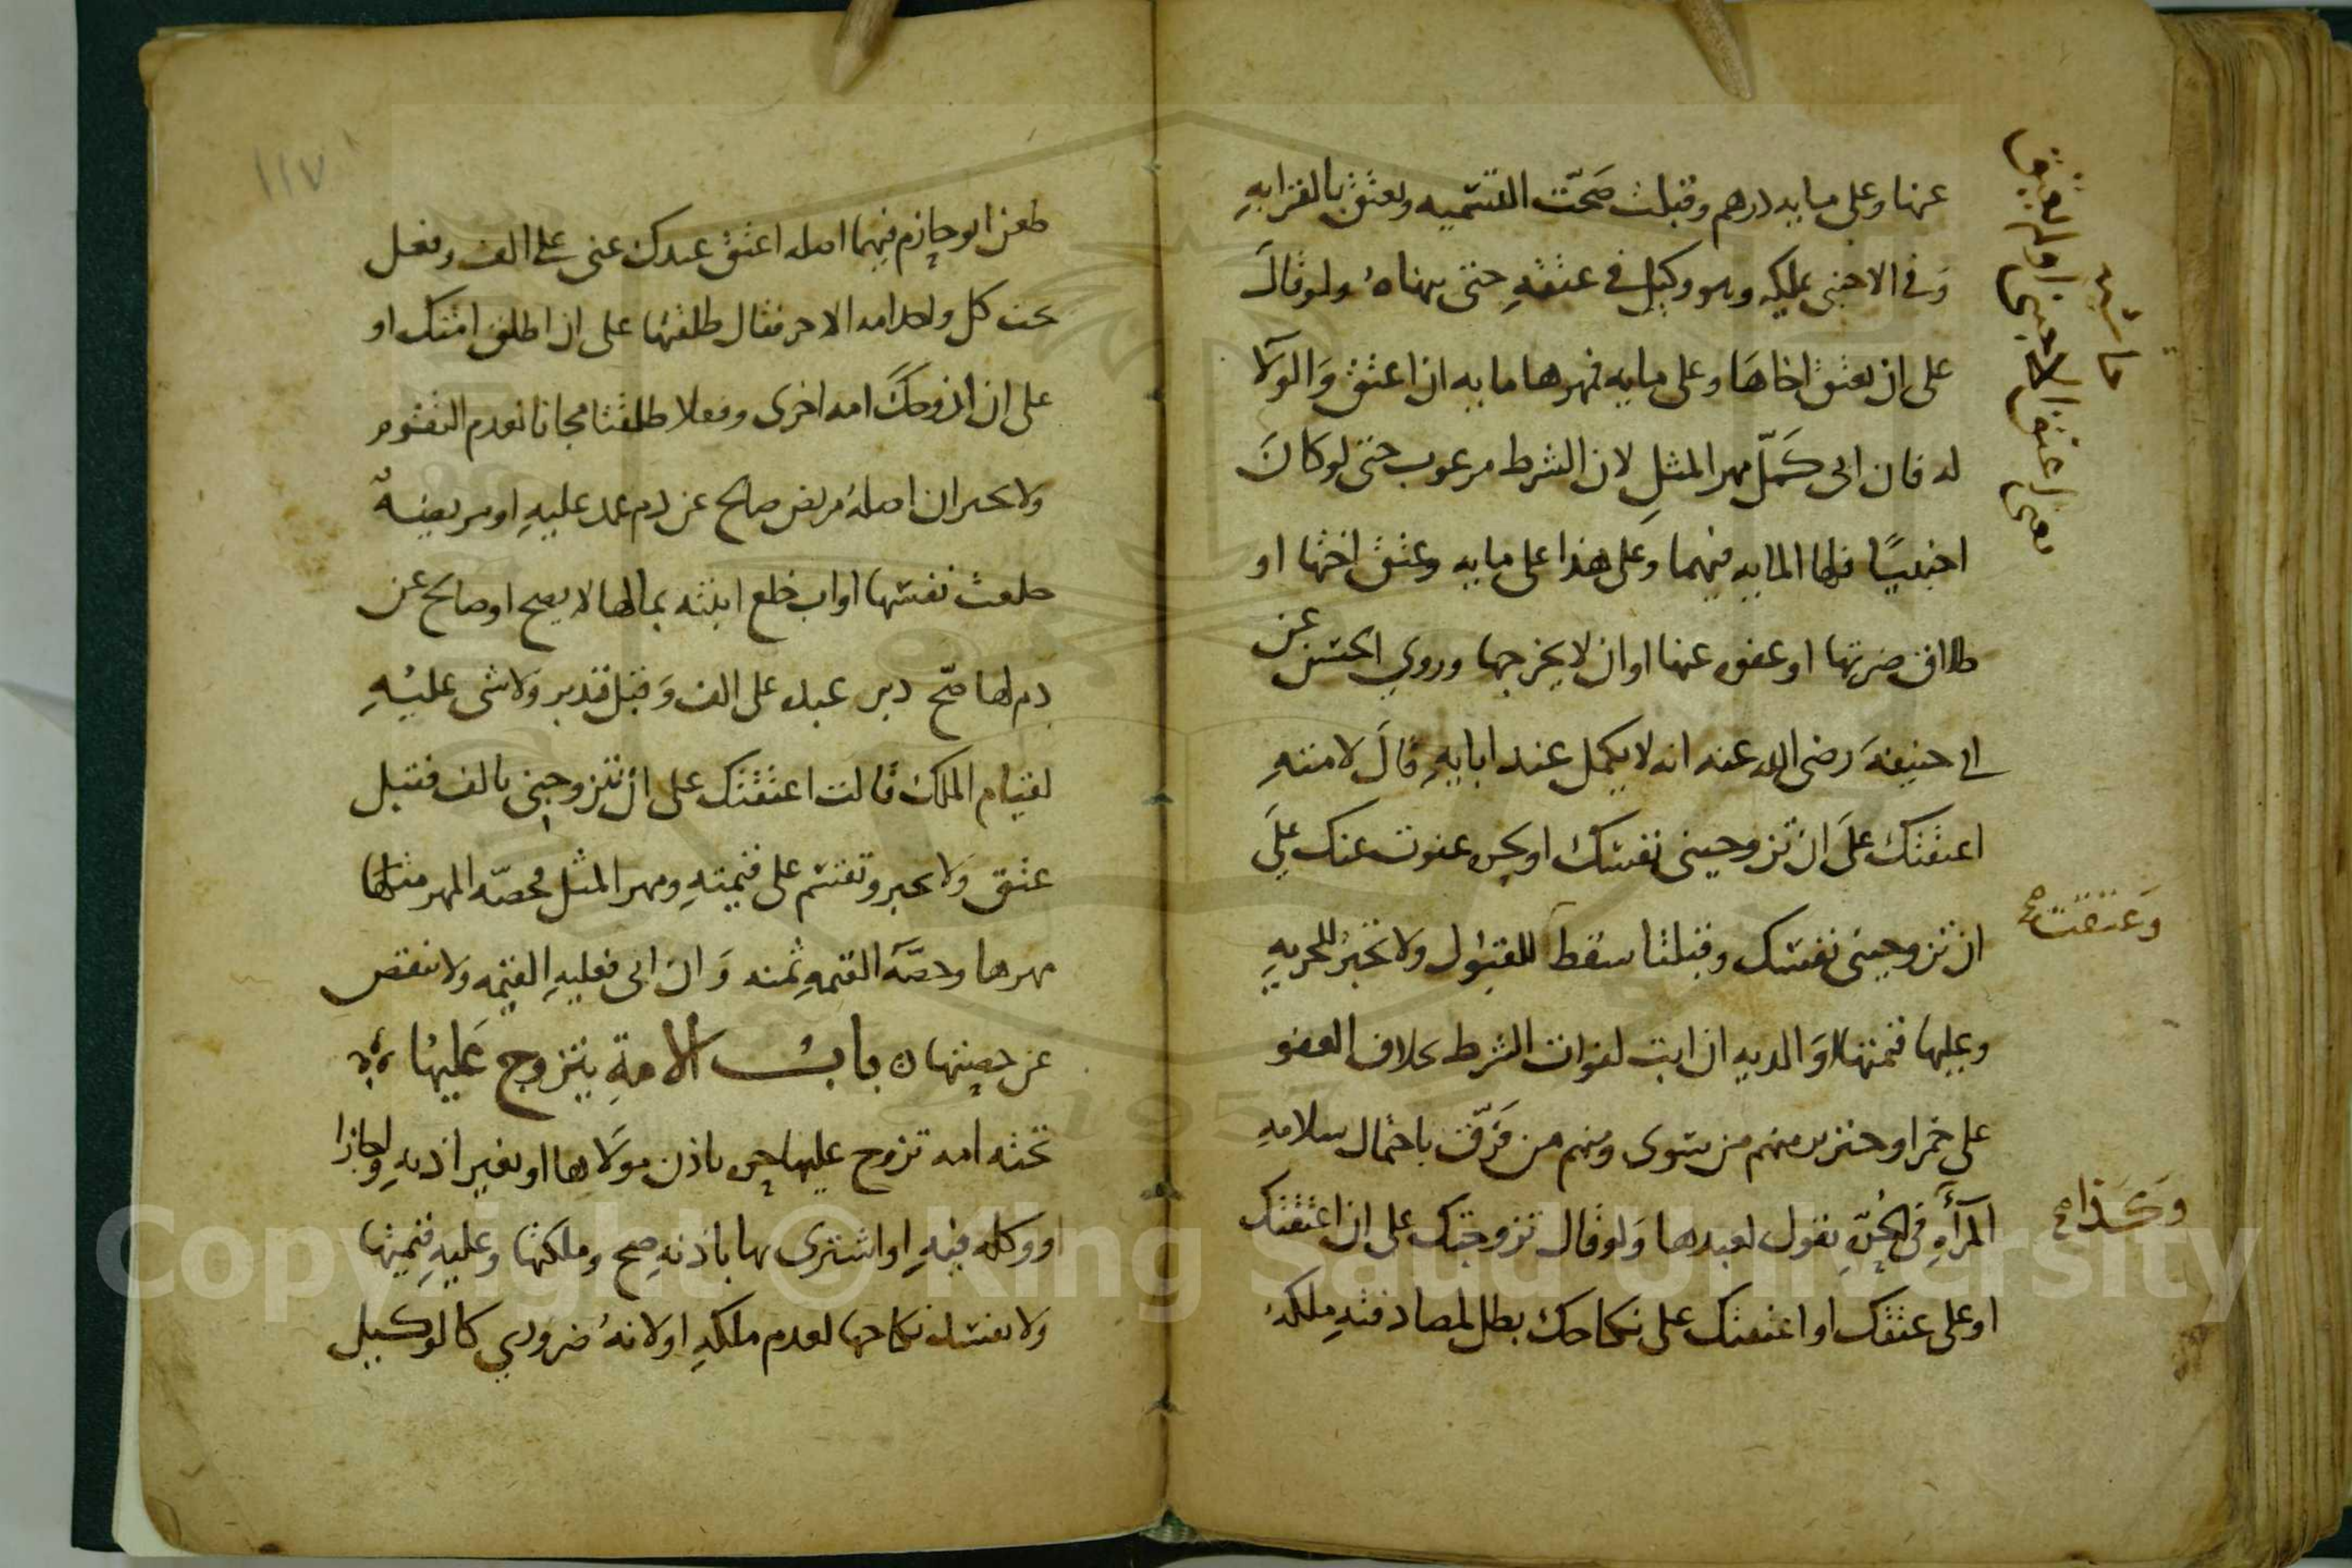 عنها وعلى مايه درهم وقبلت صَحّت التسميه ويعتق بالقرابهِ
وَفي الاجنبي يملكه وهو وكيل في عتقهِ حتى ينهاهُ ولو قالَ
على ان يعتق اخاهَا وعلى مايه فمهرها مايه ان اعتق وَالولا
له فان ابى كَمّل مهر المثلِ لان الشرط مرغوب حتى لو كانَ
اجنبيًا فلها المايه فيهما وعلى هذا على مايه وعتق اختها او
طلاق ضرتها او عفوه عنها او ان لا يخرجها وروي الحسن عن
ابي حنيفهَ رضي الله عنه انه لا يكمل عند ابايهِ قالَ لامتهِ
اعتقتك علَى ان تزوجيني نفسك او عفوت عنك علَى
ان تزوجيني نفسك وقبلتا سقطَ للقبول ولا تجبرُ للحريهِ
وعليها قيمتها وَالديه ان ابت لفوات الشرط بخلاف العفو
على خمر او خنزير منهم من يسوى ومنهم من فَرّقَ باحتمال سلامهِ
المرأَهِ في تقول لعبدها وَلو قال تزوجتك على ان اعتقتك
او على عتقك او اعتقتك على نكاحك بطل لمصادفتهِ ملكهُ
حاشيه
يعني اعتق الاجنبي او لم يعتق
وَعتقت صح
وَكَذا صح
١١٧
طعن ابو حازم فيهما اصله اعتق عبدك عني على الف وفعل
تحت كل واحد امه الاخر فقال طلقتها على ان اطلق امتك او
على ان ازوجكَ امه اخرى وفعلا طلقتا مجانا لعدم التقوم
ولا يجبران اصلهُ مريض صالح عن دم عمد عليهِ او مريضه
خلعت نفسها او اب خلع ابنته بمالها لا يصح او صالح عن
دم لها صَحّ دبر عبده على الف وَقبل فدبر وَلا شي عليْهِ
لقيام الملك قالت اعتقتك على ان تتزوجني بالف فقبل
عتق وَلا يجبر وتقسم على قيمتهِ ومهر المثل فحصّه المهر مثل
مهرها وحصّهَ القيمهِ ثمنه وَان ابى فعليهِ القيمه ولا ينقص
عن حصتها ه بابُ الامةِ يتزوج عَليهُا
تحته امه تزوج عليها باذن مولاها او بغير اذنهِ واجازا
او وكله فيهِ او اشترى بها باذنهِ صح وملكتها وعليهِ قيمتها
ولا يفسد نكاحها لعدم ملكهِ او لانهُ ضروري كالوكيل